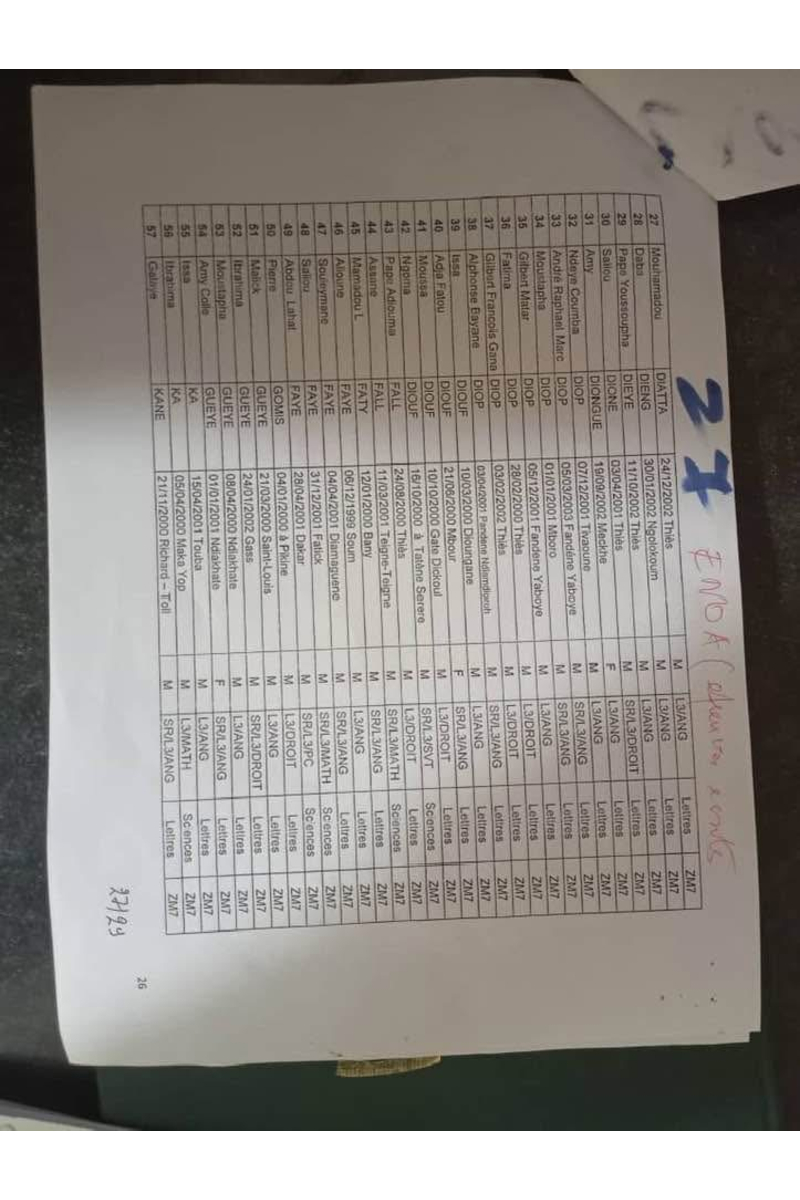 27 ENOA (
27 Mouhamadou DIATTA 24/12/2002 Thiès M L3/ANG Lettres ZM7
28 Daba DIENG 30/01/2002 Ngolokoum M L3/ANG Lettres ZM7
29 Pape Youssoupha DIEYE 11/10/2002 Thiès M L3/ANG Lettres ZM7
30 Saliou DIONE 03/04/2001 Thiès M SR/L3/DROIT Lettres ZM7
31 Amy DIONGUE 19/09/2002 Meckhe F L3/ANG Lettres ZM7
32 Ndeye Coumba DIOP 07/12/2001 Tivaoune M L3/ANG Lettres ZM7
33 André Raphael Marc DIOP 05/03/2003 Fandène Yaboye M SR/L3/ANG Lettres ZM7
34 Moustapha DIOP 01/01/2001 Mboro M SR/L3/ANG Lettres ZM7
35 Gilbert Matar DIOP 05/12/2001 Fandene Yaboye M L3/ANG Lettres ZM7
36 Fatima DIOP 28/02/2000 Thiès M L3/DROIT Lettres ZM7
37 Gilbert François Gana DIOP 03/02/2002 Thiès M L3/DROIT Lettres ZM7
38 Alphonse Bayane DIOP 03/04/2001 Pandene Ndiamdioroh M SR/L3/ANG Lettres ZM7
39 Issa DIOUF 10/03/2000 Dioungane M L3/ANG Lettres ZM7
40 Adja Fatou DIOUF 21/06/2000 Mbour F SR/L3/ANG Lettres ZM7
41 Moussa DIOUF 10/10/2000 Gate Dickoul M L3/DROIT Lettres ZM7
42 Ngoma DIOUF 16/10/2000 à Tatène Serere M SR/L3/SVT Sciences ZM7
43 Pape Adiouma FALL 24/08/2000 Thiès M L3/DROIT Lettres ZM7
44 Assane FALL 11/03/2001 Teigne-Teigne M SR/L3/MATH Sciences ZM7
45 Mamadou L. FATY 12/01/2000 Bany M SR/L3/ANG Lettres ZM7
46 Alioune FAYE 06/12/1999 Soum M L3/ANG Lettres ZM7
47 Souleymane FAYE 04/04/2001 Diamaguene M SR/L3/ANG Lettres ZM7
48 Saliou FAYE 31/12/2001 Fatick M SR/L3/MATH Sciences ZM7
49 Abdou Lahat FAYE 28/04/2001 Dakar M SR/L3/PC Sciences ZM7
50 Pierre GOMIS 04/01/2000 à Pikine M L3/DROIT Lettres ZM7
51 Malick GUEYE 21/03/2000 Saint-Louis M L3/ANG Lettres ZM7
52 Ibrahima GUEYE 24/01/2002 Gass M SR/L3/DROIT Lettres ZM7
53 Moustapha GUEYE 08/04/2000 Ndiakhate M L3/ANG Lettres ZM7
54 Amy Colle GUEYE 01/01/2001 Ndiakhate F SR/L3/ANG Lettres ZM7
55 Issa KA 15/04/2001 Touba M L3/ANG Lettres ZM7
56 Ibrahima KA 05/04/2000 Maka Yop M L3/MATH Sciences ZM7
57 Galaye KANE 21/11/2000 Richard – Toll M SR/L3/ANG Lettres ZM7
27/29
26